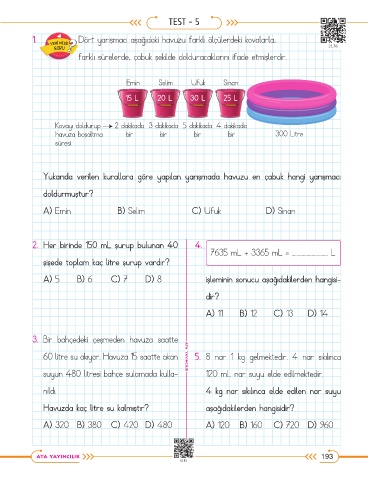 TEST - 5
1. YENİ NESİL SORU
Dört yarışmacı aşağıdaki havuzu farklı ölçülerdeki kovalarla,
farklı sürelerde, çabuk şekilde dolduracaklarını ifade etmişlerdir.
Emin Selim Ufuk Sinan
15 L 20 L 30 L 25 L
Kovayı doldurup 2 dakikada 3 dakikada 5 dakikada 4 dakikada
havuza boşaltma bir bir bir bir 300 Litre
süresi
Yukarıda verilen kurallara göre yapılan yarışmada havuzu en çabuk hangi yarışmacı
doldurmuştur?
A) Emin B) Selim C) Ufuk D) Sinan
2. Her birinde 150 mL şurup bulunan 40
şişede toplam kaç litre şurup vardır?
A) 5 B) 6 C) 7 D) 8
3. Bir bahçedeki çeşmeden havuza saatte
60 litre su akıyor. Havuza 15 saatte akan
suyun 480 litresi bahçe sulamada kulla-
nıldı.
Havuzda kaç litre su kalmıştır?
A) 320 B) 380 C) 420 D) 480
4. 7635 mL + 3365 mL = ________ L
işleminin sonucu aşağıdakilerden hangisi-
dir?
A) 11 B) 12 C) 13 D) 14
5. 8 nar 1 kg gelmektedir. 4 nar sıkılınca
120 mL nar suyu elde edilmektedir.
4 kg nar sıkılınca elde edilen nar suyu
aşağıdakilerden hangisidir?
A) 120 B) 160 C) 720 D) 960
ATA YAYINCILIK
193